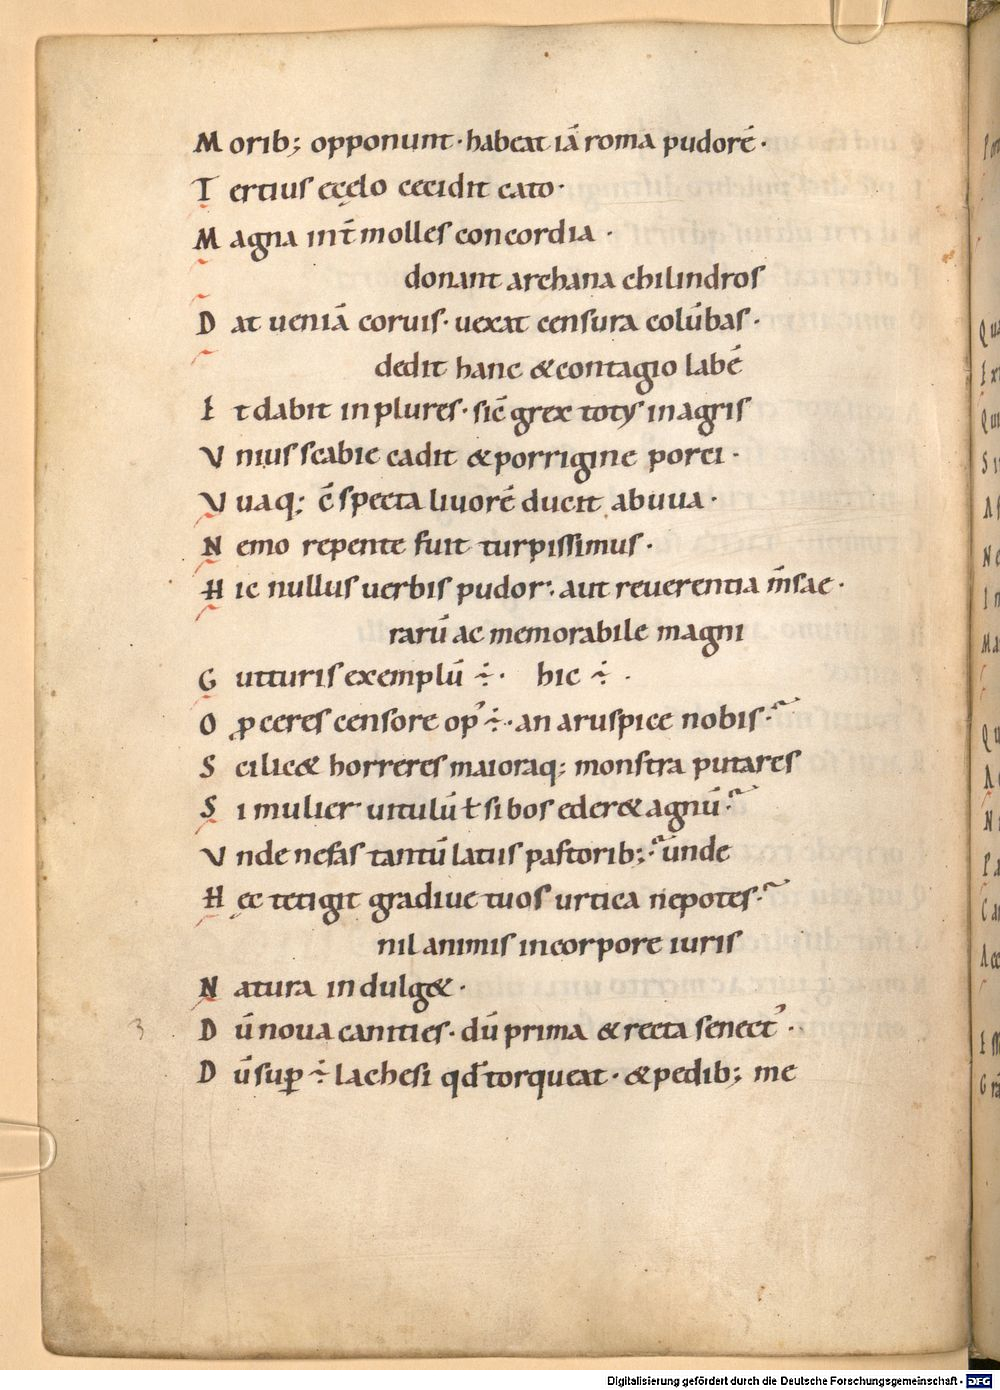 M orib; opponunt · habeat iā roma pudorē ·
T ertius ecęlo cecidit cato ·
M agna int̄ molles concordia ·
donant archana chilindros
D at ueniā coruis · uexat censura colūbas ·
dedit hanc & contagio labē
E t dabit in plures · sic̄ grex toty in agris
V nius scabie cadit & porrigine porci ·
V uaq; c̄specta liuorē ducit abuua ·
N emo repente fuit turpissimus ·
H ic nullus uerbis pudor · aut reuerentia m̄sae ·
rarū ac memorabile magni
G utturis exemplū ÷ · hic ÷ ·
O ꝓceres censore opꝰ ÷ · an aruspice nobis ·
S cilic& horreres maioraq; monstra putares
S i mulier uitulū ƚ si bos eder& agnū ·
V nde nefas tantū latiis pastorib; · unde
H ęc tetigit gradiue tuos urtica nepotes ·
nil animis in corpore iuris
N atura indulg& ·
3
D ū noua canities · dū prima & recta senectꝰ ·
D ū suꝑ ÷ lachesi qd̄ torqueat · & pedib; me
Digitalisierung gefördert durch die Deutsche Forschungsgemeinschaft - DFG